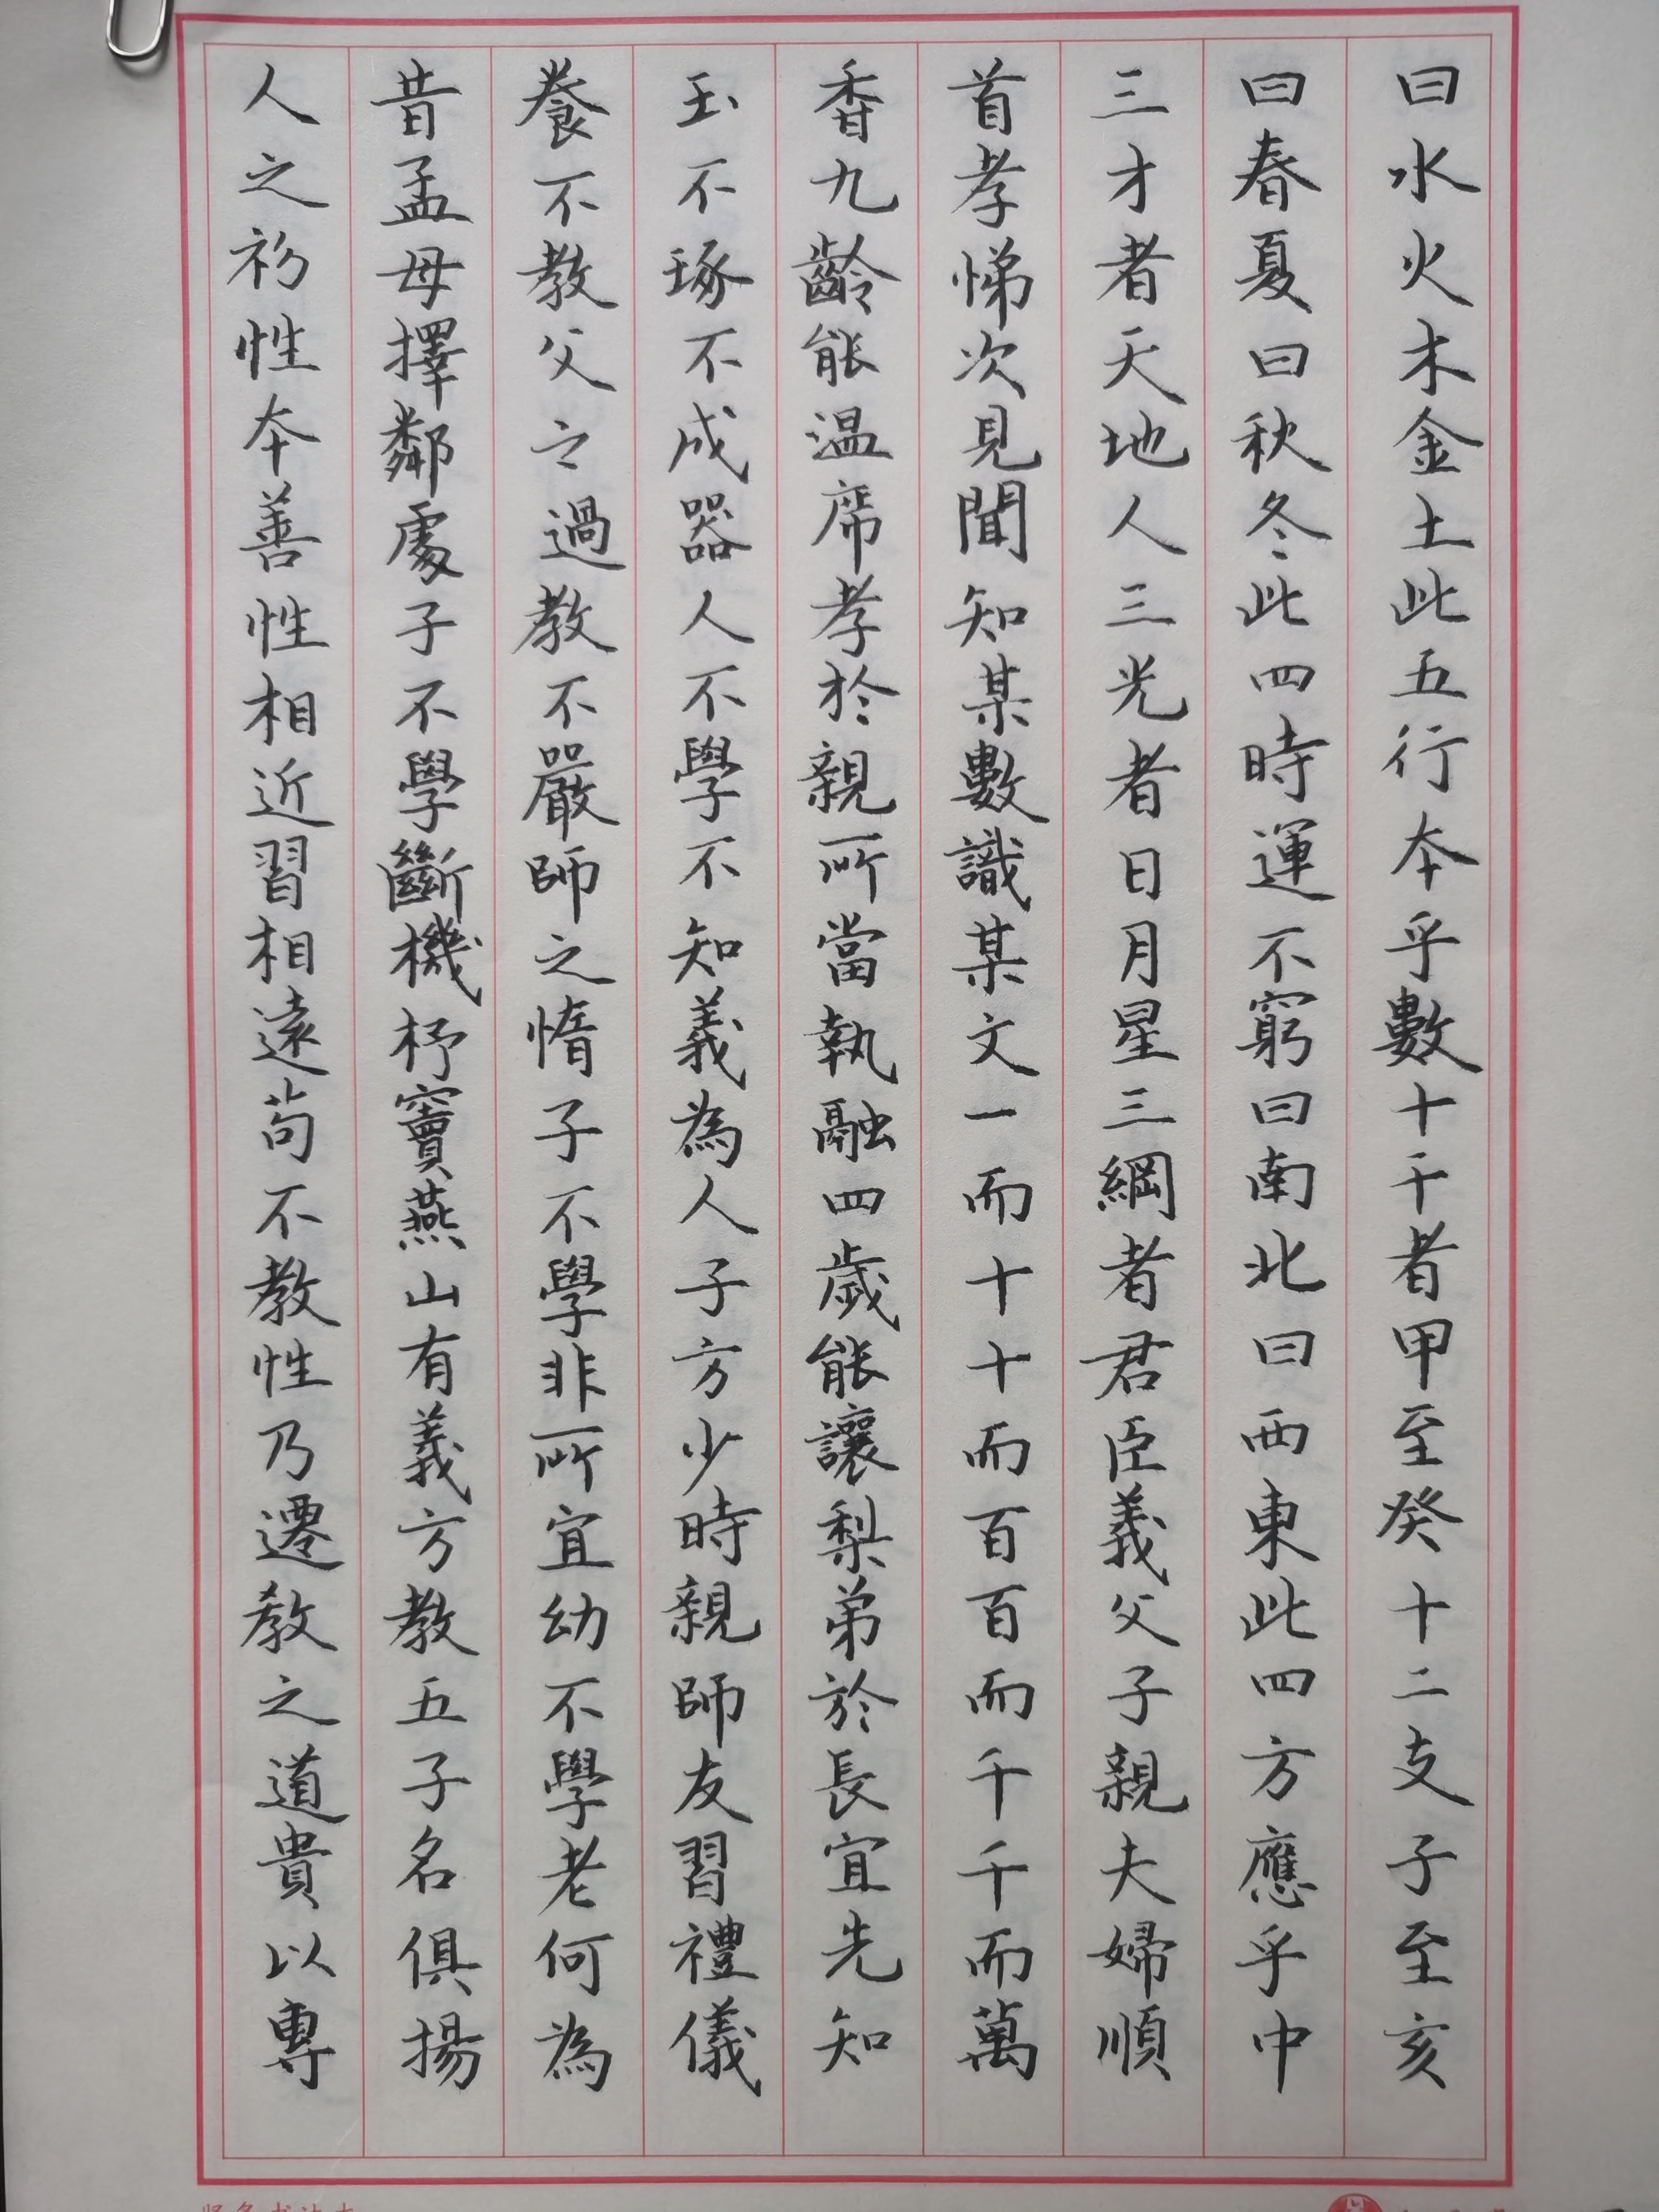 人之初性本善性相近習相遠苟不教性乃遷教之道貴以專
昔孟母擇鄰處子不學斷機杼竇燕山有義方教五子名俱揚
養不教父之過教不嚴師之惰子不學非所宜幼不學老何為
玉不琢不成器人不學不知義為人子方少時親師友習禮儀
香九齡能温席孝於親所當執融四歲能讓梨弟於長宜先知
首孝悌次見聞知某數識某文一而十十而百百而千千而萬
三才者天地人三光者日月星三綱者君臣義父子親夫婦順
曰春夏曰秋冬此四時運不窮曰南北曰西東此四方應乎中
曰水火木金土此五行本乎數十干者甲至癸十二支子至亥